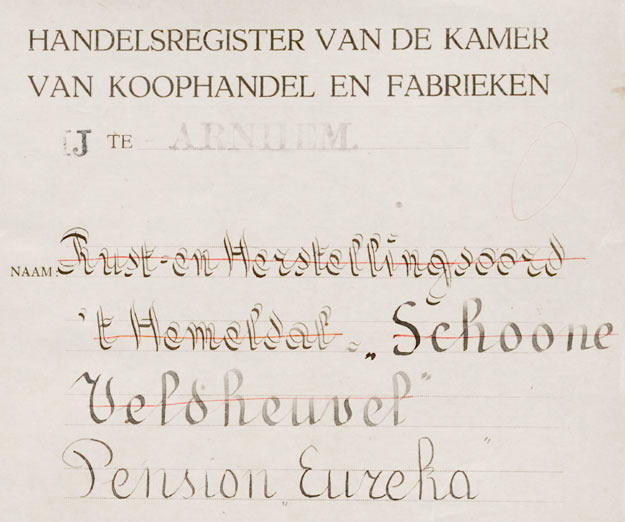 HANDELSREGISTER VAN DE KAMER
VAN KOOPHANDEL EN FABRIEKEN
IJ TE ARNHEM.
NAAM: Rust- en Herstellingsoord
't Hemeldal - „Schoone
Veldheuvel"
Pension „Eureka"